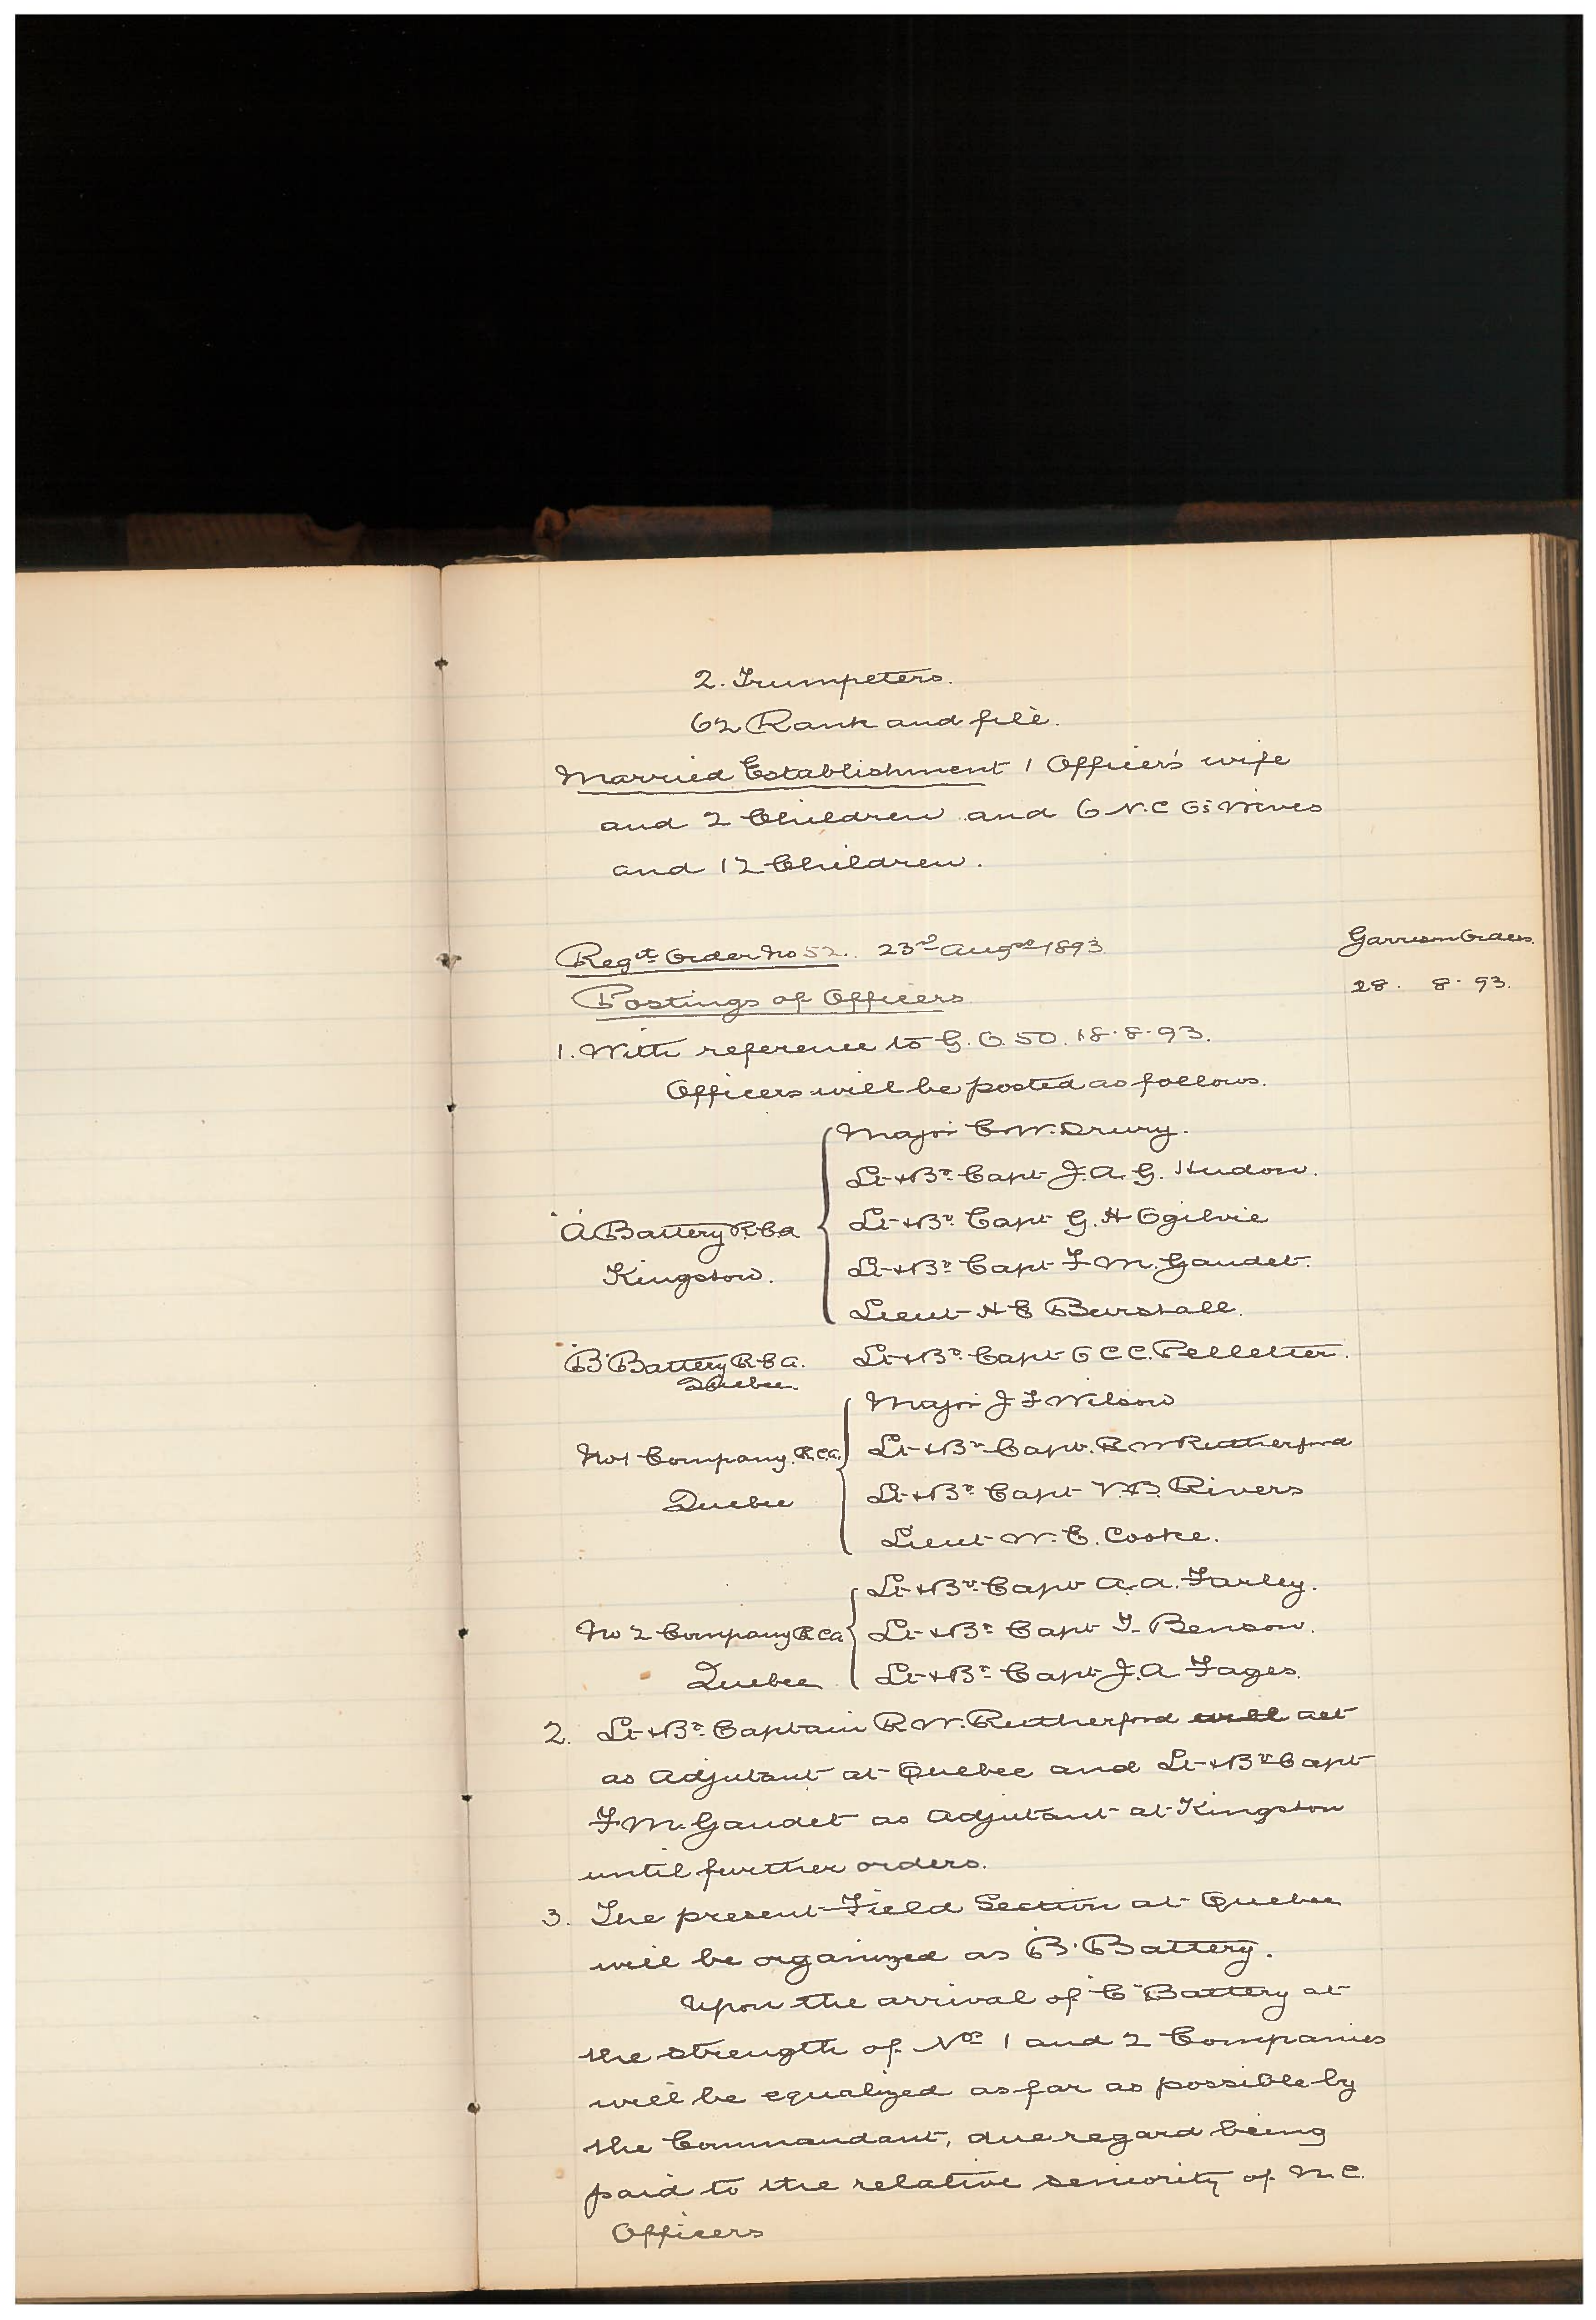 2. Trumpeters.
62 Rank and file.
Married Establishment 1 Officer's wife
and 2 Children and 6 N.C.O's Wives
and 12 Children.
Regt Order No 52. 23rd Augst 1893
Garrison Orders.
28. 8. 93.
Postings of Officers
1. With reference to G.O. 50. 18.8.93.
Officers will be posted as follows.
Major C.W. Drury.
Lt & Bt Capt J.A.G. Hudon.
"A" Battery R.C.A.
Lt & Bt Capt G.H Ogilvie
Kingston.
Lt & Bt Capt F.M. Gaudet.
Lieut H E Burstall.
"B" Battery R.C.A. Lt & Bt Capt O C C. Pelletier.
Quebec.
Major J F Wilson
No 1 Company. R.C.A. Lt & Bt Capt. R W Rutherford
Quebec Lt & Bt Capt V.B. Rivers
Lieut W. E. Cooke.
Lt & Bt Capt A.A. Farley.
No 2 Company R C A Lt & Bt Capt T. Benson.
Quebec Lt & Bt Capt J.A. Fages.
2. Lt & Bt Captain R.W. Rutherford will act
as Adjutant at Quebec and Lt & Bt Capt
F.M. Gaudet as Adjutant at Kingston
until further orders.
3. The present Field Section at Quebec
will be organized as "B" Battery.
Upon the arrival of "C" Battery at
the strength of Nos 1 and 2 Companies
will be equalized as far as possible by
the Commandant, due regard being
paid to the relative seniority of N.C.
Officers